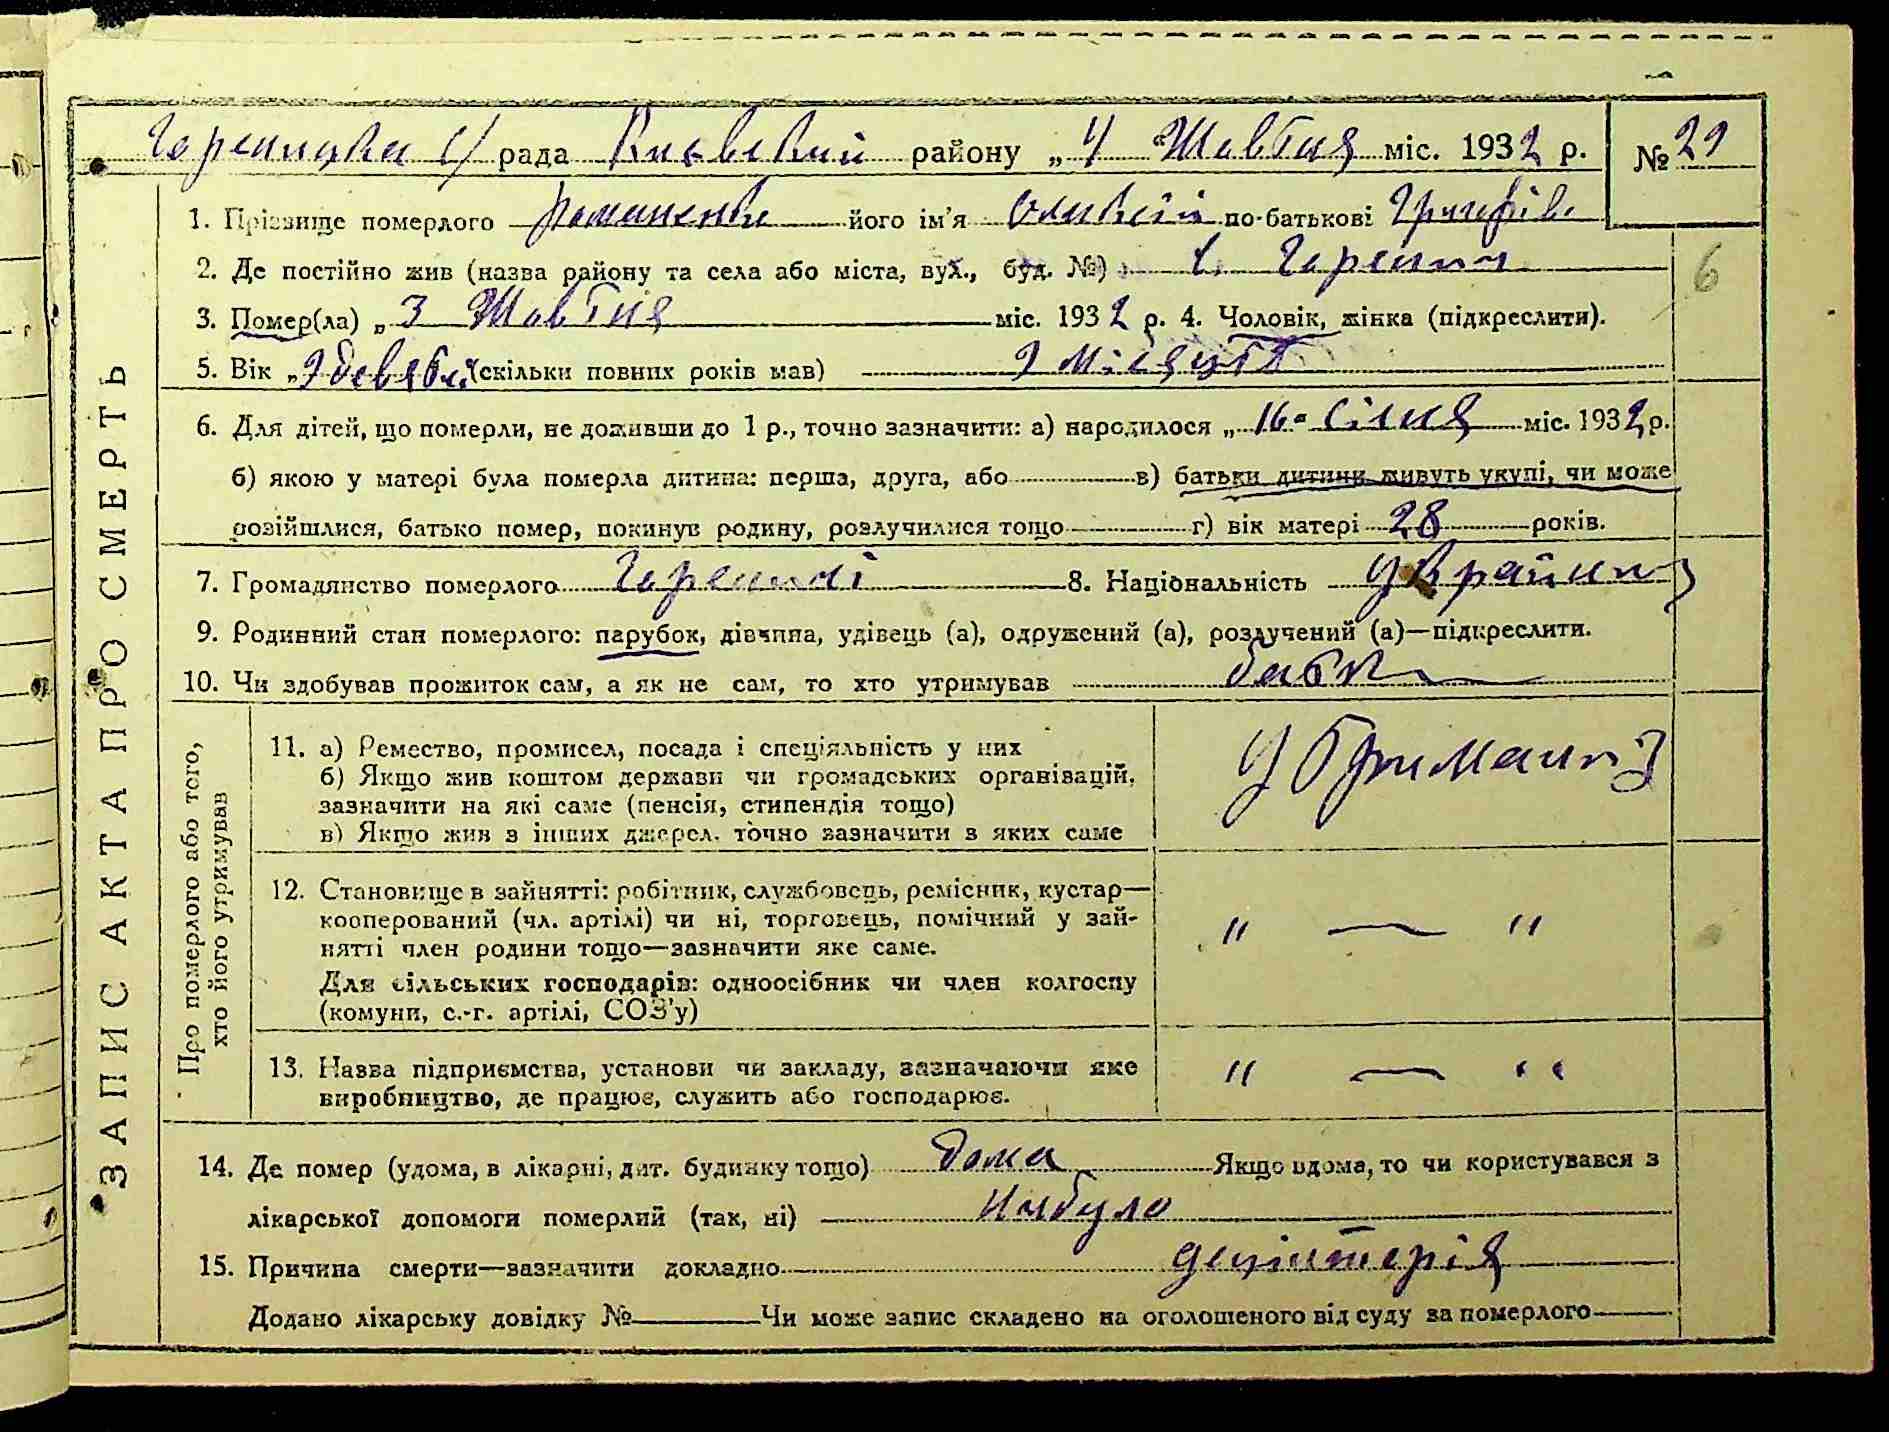 Гореницка с/ рада Київський району „4 Жовтня міс. 1932 р. № 29
1. Прізвище померлого Романенко його ім’я Олексій по-батькові
2. Де постійно жив (назва району та села або міста, вул., буд. №) с. Гореничі
6
3. Помер(ла) „3 Жовтня міс. 1932 р. 4. Чоловік, жінка (підкреслити).
5. Вік „9 (скільки повних років мав) 9 місяців
6. Для дітей, що померли, не доживши до 1 р., точно зазначити: а) народилося „16" Січня міс. 1932 р.
б) якою у матері була померла дитина: перша, друга, або в) батьки дитини живуть укупі, чи може
розійшлися, батько помер, покинув родину, розлучилися тощо г) вік матері 28 років.
7. Громадянство померлого 8. Національність
9. Родинний стан померлого: парубок, дівчина, удівець (а), одружений (а), розлучений (а)—підкреслити.
10. Чи здобував прожиток сам, а як не сам, то хто утримував
ЗАПИС АКТА ПРО СМЕРТЬ
Про померлого або того, хто його утримував
11. а) Ремество, промисел, посада і спеціяльність у них
б) Якщо жив коштом держави чи громадських організацій,
зазначити на які саме (пенсія, стипендія тощо)
в) Якщо жив з інших джерел, точно зазначити з яких саме
12. Становище в зайнятті: робітник, службовець, ремісник, кустар—
кооперований (чл. артілі) чи ні, торговець, помічний у зай-
нятті член родини тощо—зазначити яке саме.
" — "
Для сільських господарів: одноосібник чи член колгоспу
(комуни, с.-г. артілі, СОЗ’у)
13. Назва підприємства, установи чи закладу, зазначаючи яке
виробництво, де працює, служить або господарює.
" — "
14. Де помер (удома, в лікарні, дит. будинку тощо) дома Якщо вдома, то чи користувався з
лікарської допомоги померлий (так, ні) нибуло
15. Причина смерти—зазначити докладно
Додано лікарську довідку № Чи може запис складено на оголошеного від суду за померлого